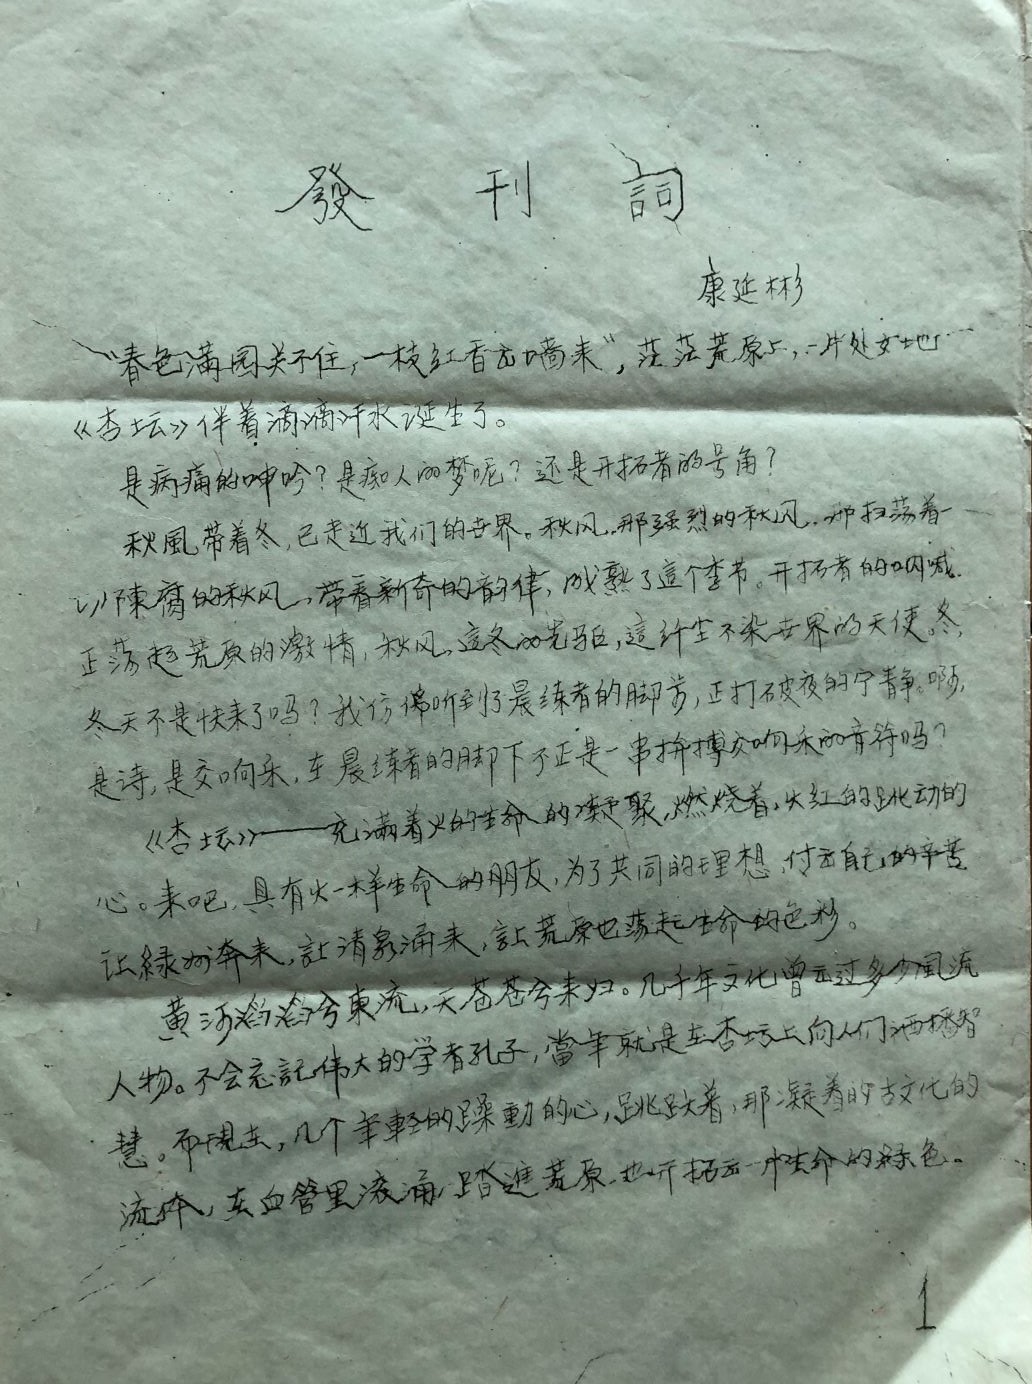 發刊詞
康延彬
“春色满园关不住,一枝红杏出墙来”,茫茫荒原上,一片处女地
《杏坛》伴着滴滴汗水诞生了。
是病痛的呻吟?是痴人的梦呢?还是开拓者的号角?
秋風带着冬,已走近我们的世界。秋风,那强烈的秋风,那扫荡着一
切陳腐的秋风,带着新奇的韵律,成熟了這个季节。开拓者的呐喊,
正荡起荒原的激情,秋风,這冬的先驱,這纤尘不染世界的天使。冬,
冬天不是快来了吗?我仿佛听到了晨练者的脚步,正打破夜的宁静。啊,
是诗,是交响乐,在晨练者的脚下不正是一串拚搏交响乐的音符吗?
《杏坛》——充满着火的生命的凝聚,燃烧着,火红的跳动的
心。来吧,具有火一样生命的朋友,为了共同的理想,付出自己的辛苦
让綠州奔来,让清泉涌来,让荒原也荡起生命的色彩。
黄河滔滔兮東流,天苍苍兮来归。几千年文化曾出过多少風流
人物。不会忘記伟大的学者孔子,當年就是在杏坛上向人们洒播智
慧。而現在,几个年輕的躁動的心,跳跃着,那凝着的古文化的
流体,在血管里滚涌,踏進荒原,也开拓出一片生命的绿色。
1